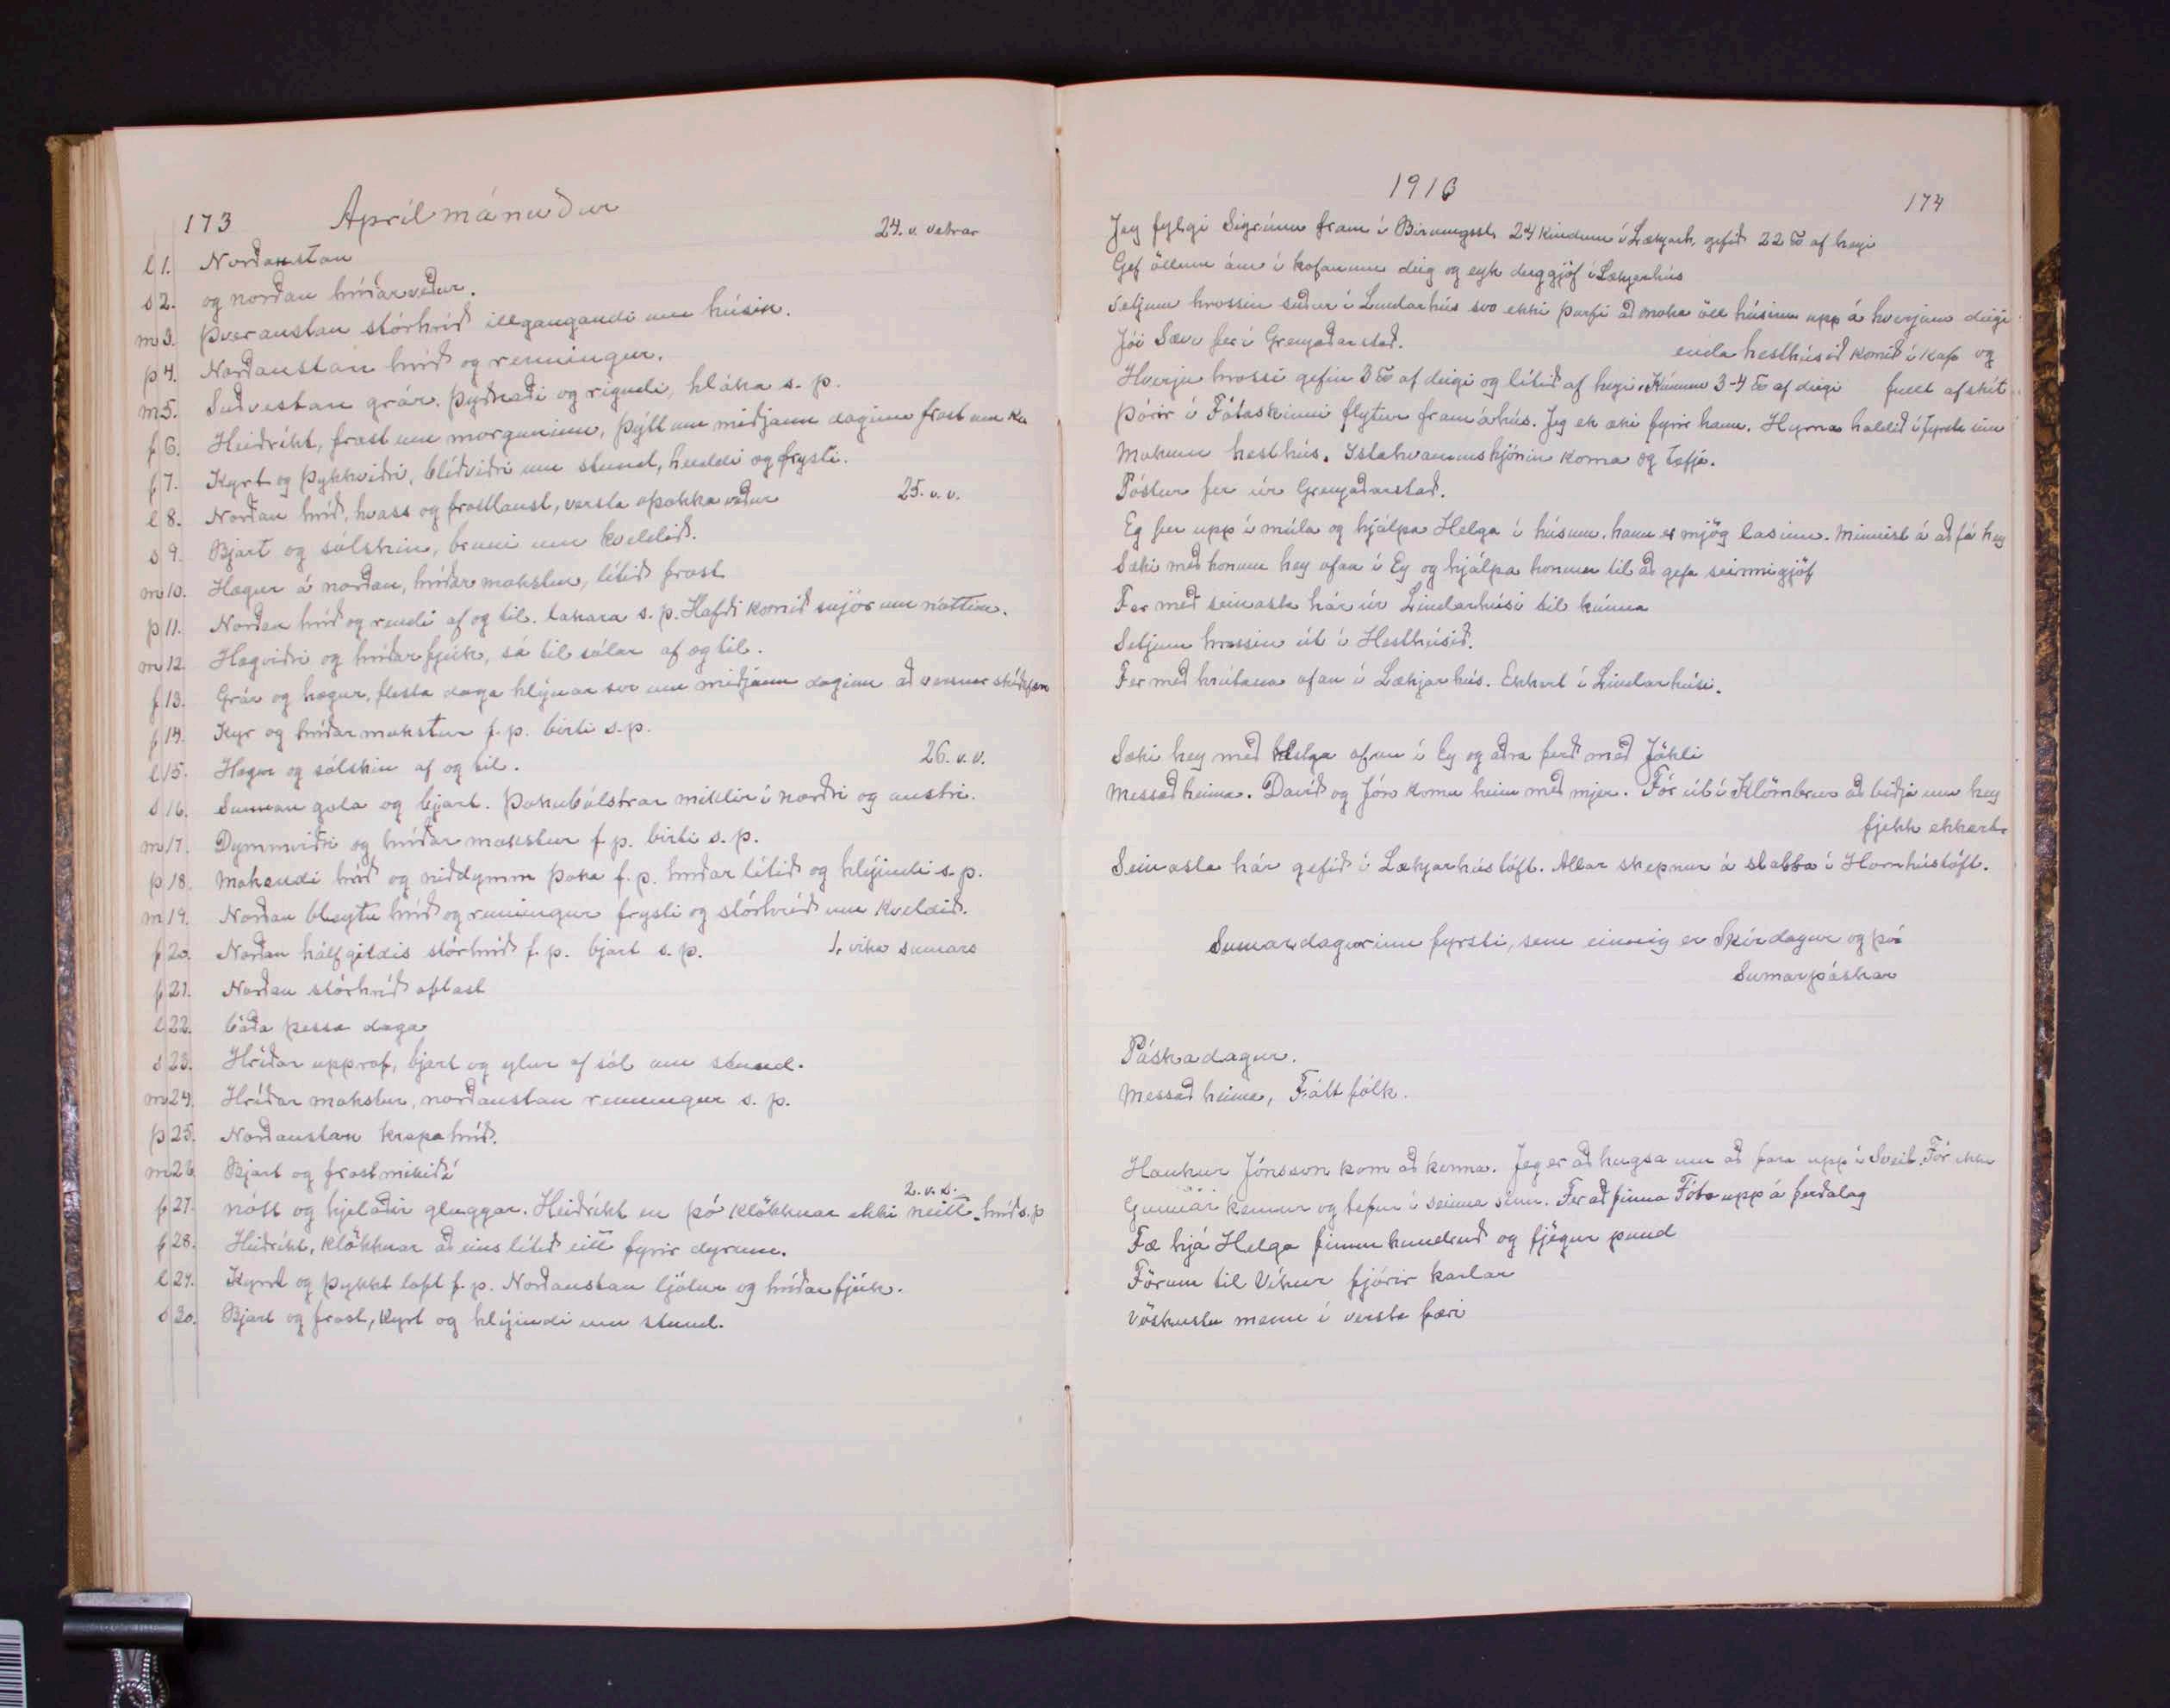 173 Aprílmánuður
24. v. vetrar
l 1. Norðaustan
s 2. og norðan hríðarveður.
m 3. Þveraustan stórhríð illgangandi um húsin.
þ 4. Norðaustan hríð og renningur.
m 5. Suðvestan grár. Þyðnaði og rigndi, hláka s. p.
f 6. Heiðríkt, frost um morguninn, þýtt um miðjann daginn frost um kv
f 7. Kyrt og þykkviðri, blíðviðri um stund, kuldi og frysti.
l 8. Norðan hríð, hvass og frostlaust, versta óþokka veður 25. v. v.
s 9. Bjart og sólskin, bruni um kveldið.
m 10. Hægur á norðan, hríðar mokstur, lítið frost
þ 11. Norðan hríð og rendi af og til. lakara s. p. Hafði komið snjór um nóttina.
m 12. Hægviðri og hríðarfjúk, sá til sólar af og til.
f 13. Grár og hægur, flesta daga hlýnar svo um miðjann daginn að versnar
f 14. Kyr og hríðarmokstur f. p. birti s. p.
l 15. Hægur og sólskin af og til. 26. v. v.
s 16. Sunnan gola og bjart. Þokubólstrar miklir í norðri og austri.
m 17. Dymmviðri og hríðar mokstur f p. birti s. p.
þ 18. Mokandi hríð og niðdymm þoka f. p. hríðar lítið og hlýindi s. p.
m 19. Norðan bleytu hríð og renningur frysti og stórhríð um kveldið.
f 20. Norðan hálfgildis stórhríð f. p. bjart s. p. 1. vika sumars
f 21. Norðan stórhríð oftast
l 22. báða þessa daga
s 23. Hríðar upprof, bjart og ylur af sól um stund.
m 24. Hríðar mokstur, norðaustan renningur s. p.
þ 25. Norðaustan krapahríð.
m 26 Bjart og frost mikið í
2. v. s.
f 27. nótt og hjelaðir gluggar. Heiðríkt en þó klökknar ekki neitt. hríð s. p
f 28. Heiðríkt, klökknar að eins lítið eitt fyrir dyrum.
l 29. Kyrrt og þykkt loft f. p. Norðaustan ljótur og hríðarfjúk.
s 30. Bjart og frost, kyrt og hlýindi um stund.
1916
174
Jeg fylgi Sigrúnu fram í 24 kindum í Lækjarh. gefið 22 ℔ af heyi
Gef öllum ám í kofanum deig og eyk deiggjöf í Lækjarhús
Setjum hrossin suður í Lindarhús svo ekki þurfi að moka öll húsin upp á hverjum degi
Jói Sæm fer í Grenjaðarstað. enda hesthúsið komið í kaf og
Hverju hrossi gefin 3 ℔ af deigi og lítið af heyi. Kúnum 3-4 ℔ af deigi fullt af skít
Þórir í Fótaskinni flytur fram á hús. Jeg ek æki fyrir hann. Hyrna haldið í fyrsta sinn
Mokum hesthús. Ystahvammshjónin koma og tefja.
Póstur fer úr Grenjaðarstað.
Eg fer upp í múla og hjálpa Helga í húsum. hann er mjög lasinn. Minnist á að fá hey
Sæki með honum hey ofan í Ey og hjálpa honum til að gefa seinnigjöf
Fer með seinasta hár úr Lindarhúsi til kúnna
Setjum hrossin út í Hesthúsið.
Fer með hrútana ofan í Lækjarhús. Ekkert í Lindarhúsi.
Sæki hey með Helga ofan í Ey og aðra ferð með Jökli
Messað heima. Davíð og Jón koma heim með mjer. Fór út í Klömbrur að biðja um hey
fjekk ekkert
Seinasta hár gefið í Lækjarhústóft. Allar skepnur á stabba í Hornhústóft.
Sumardagurinn fyrsti, sem einnig er Skírdagur og þá
Sumarpáskar
Páskadagur.
Messað heima, Fátt fólk.
Haukur Jónsson kom að kenna. Jeg er að hugsa um að fara upp í Sveit. Fór ekki
Gunnar kemur og tefur í seinna sinn. Fer að finna Fóta upp á ferðalag
Fæ hjá Helga fimm hundruð og fjögur pund
Förum til Víkur fjórir karlar
Vöskustu menn í versta færi